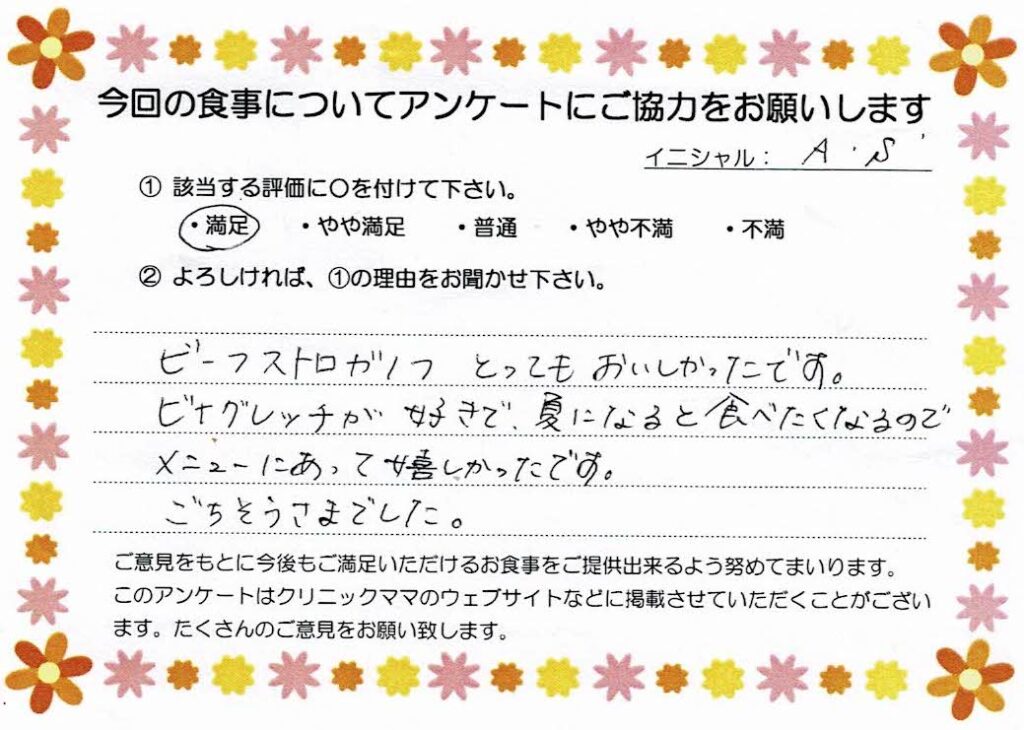 今回の食事についてアンケートにご協力をお願いします
イニシャル： A・S
① 該当する評価に〇を付けて下さい。
・満足 ・やや満足 ・普通 ・やや不満 ・不満
② よろしければ、①の理由をお聞かせ下さい。
ビーフストロガノフ とってもおいしかったです。
ビナグレッチが 好きで、夏になると食べたくなるので
メニューにあって嬉しかったです。
ごちそうさまでした。
ご意見をもとに今後もご満足いただけるお食事をご提供出来るよう努めてまいります。
このアンケートはクリニックママのウェブサイトなどに掲載させていただくことがござい
ます。たくさんのご意見をお願い致します。